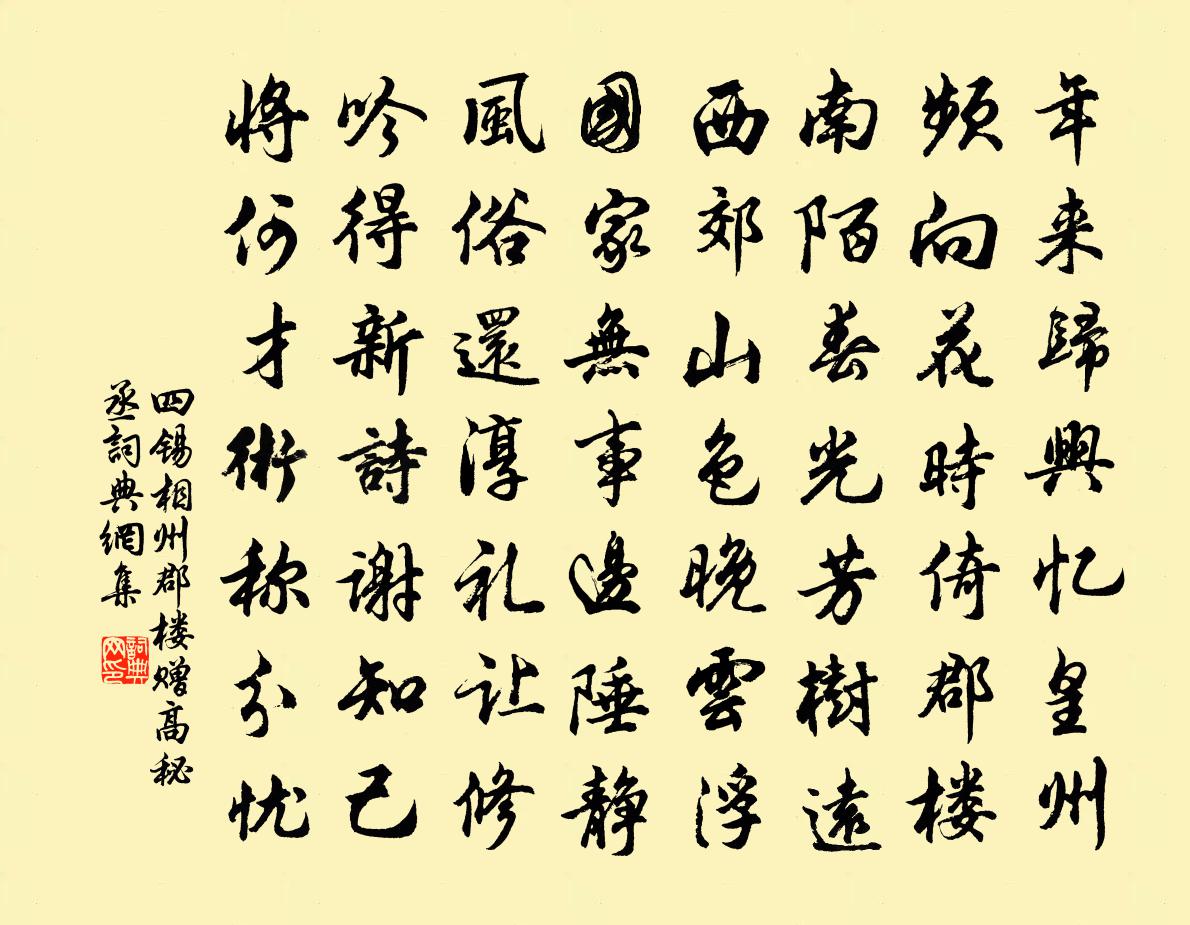 年来歸興忆皇州
頻向花時倚郡楼
南陌春光芳樹遠
西郊山色晚雲浮
國家無事邊陲静
風俗還淳礼让修
吟得新詩谢知己
将何才術称分忧
四锡相州郡楼赠高秘
丞詞典網集
詞典网印